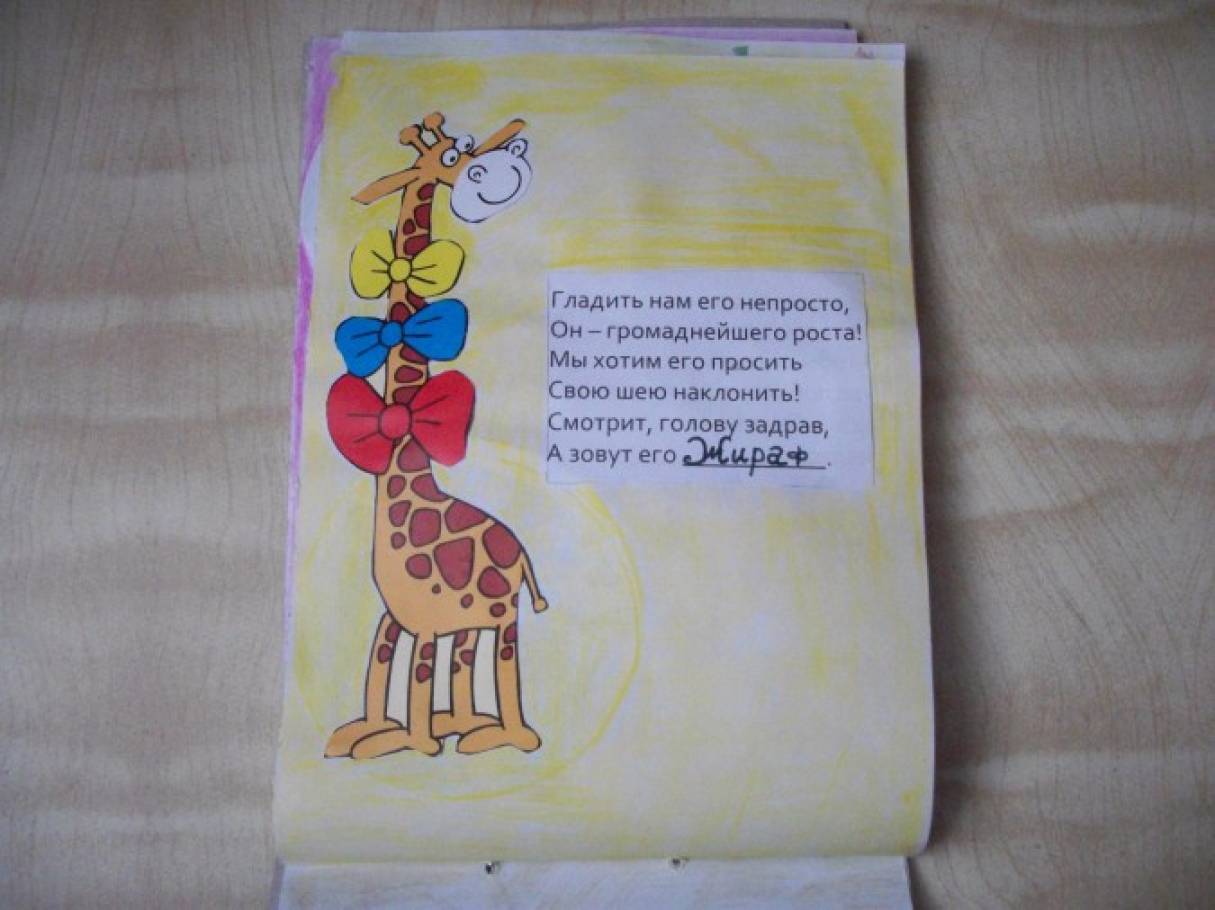 Гладить нам его непросто,
Он – громаднейшего роста!
Мы хотим его просить
Свою шею наклонить!
Смотрит, голову задрав,
А зовут его Жираф.